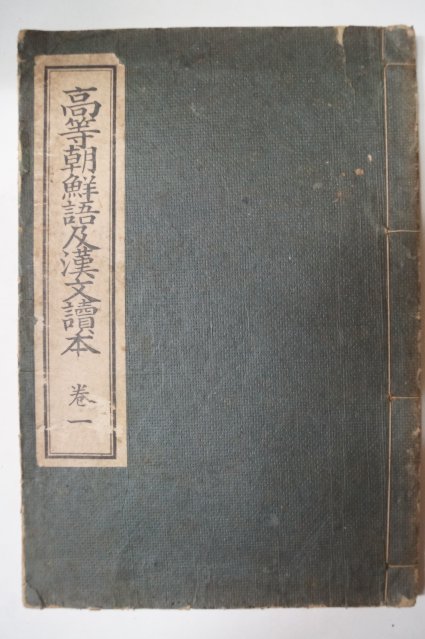 高等朝鮮語及漢文讀本 卷一